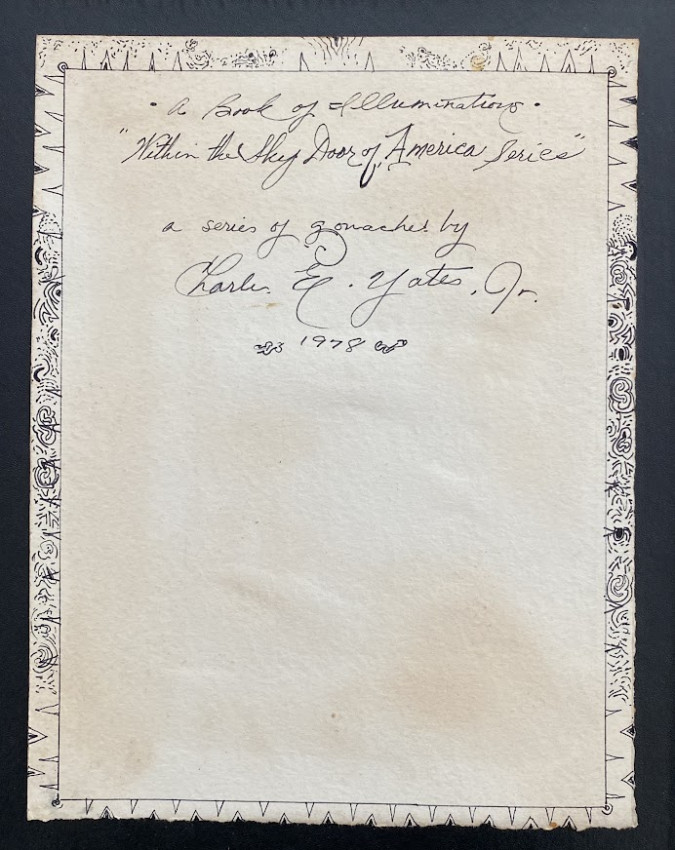 • a Book of Illuminations •
"Within the Sky Door of America Series"
a series of gouaches by
Charles E. Yates, Jr.
1978